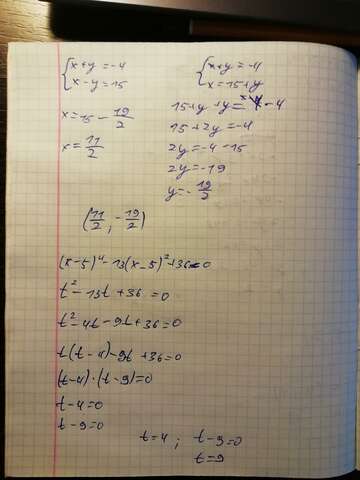 {x+y=-4
x-y=15
x=15-19/2
x=11/2
{x+y=-4
x=15+y
15+y+y=-4
15+2y=-4
2y=-4-15
2y=-19
y=-19/2
(11/2, -19/2)
(x-5)⁴-13(x-5)²+36=0
t²-13t+36=0
t²-4t-9t+36=0
t(t-4)-9t+36=0
(t-4)·(t-9)=0
t-4=0
t-9=0
t=4; t-9=0
t=9